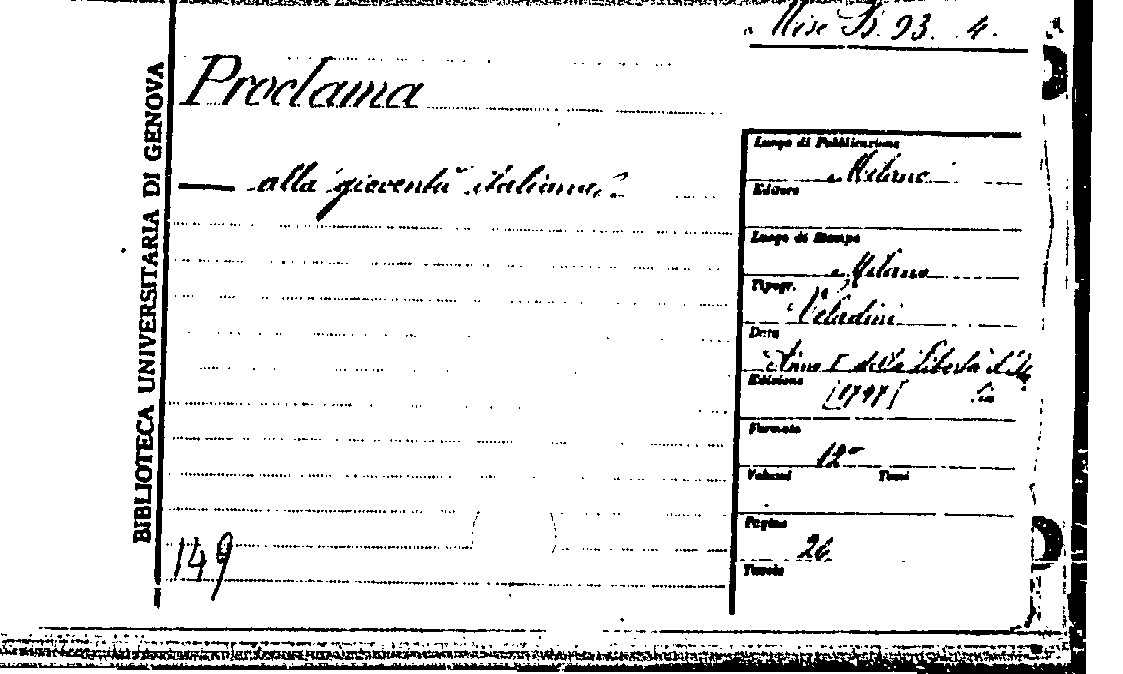 Misc. B. 93. 4.
Proclama
— alla gioventù italiana.
BIBLIOTECA UNIVERSITARIA DI GENOVA
149
Luogo di Pubblicazione
Milano
Editore
Luogo di Stampa
Milano
Tipogr.
Veladini
Data
Anno I della libertà
Edizione
[1797]
Formato
12°
Volumi Tomi
Pagine
26
Tavole